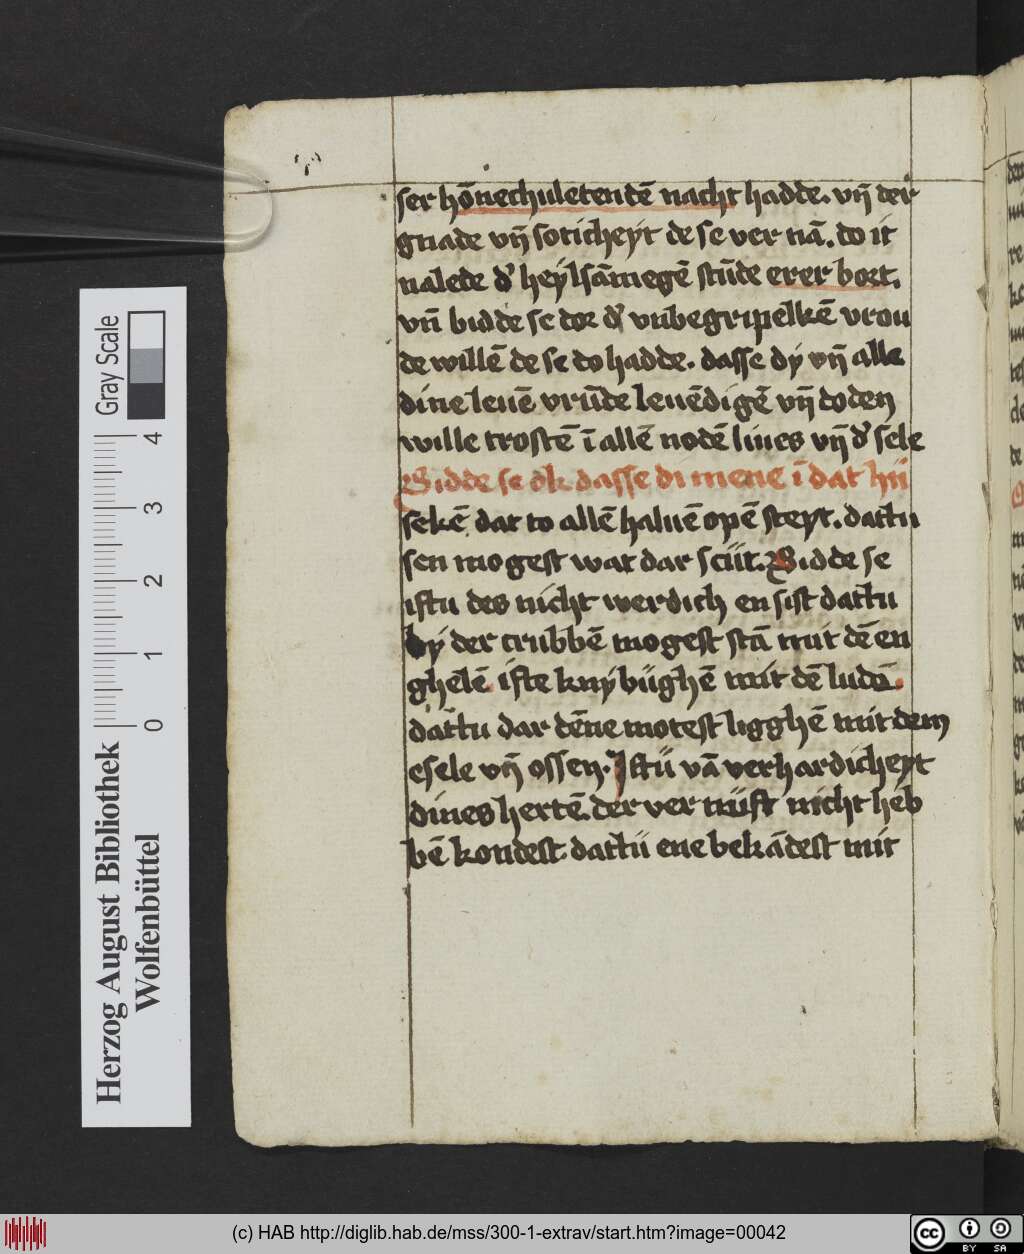 ser hōnechuletendē nacht hadde. vn̄ der
gnade vn̄ soticheyt de se ver nā. do it
nalede d' heylsāmegē stūde erer bort.
vn̄ bidde se dor d' vnbegripelkē vrou
de willē de se do hadde. dasse dy vn̄ alle
dine leuē vrūde leuēdigē vn̄ doden
wille trostē ī allē nodē liues vn̄ d' sele
Bidde se ok dasse di mene ī dat hu
sekē dat to allē haluē opē steyt. dattu
sen mogest wat dar scut. Bidde se
istu des nicht werdich en sist dattu
by der crubbē mogest stā mit dē en
ghelē. iste kny bughē mit dē ludē.
dattu dar dēne motest ligghē mit dem
esele vn̄ ossen. Istu vā verhardicheyt
dines hertē. der ver nuft nicht heb
bē kondest dattu ene bekādest mit
Gray Scale
0 1 2 3 4
Herzog August Bibliothek
Wolfenbüttel
(c) HAB http://diglib.hab.de/mss/300-1-extrav/start.htm?image=00042
cc BY SA